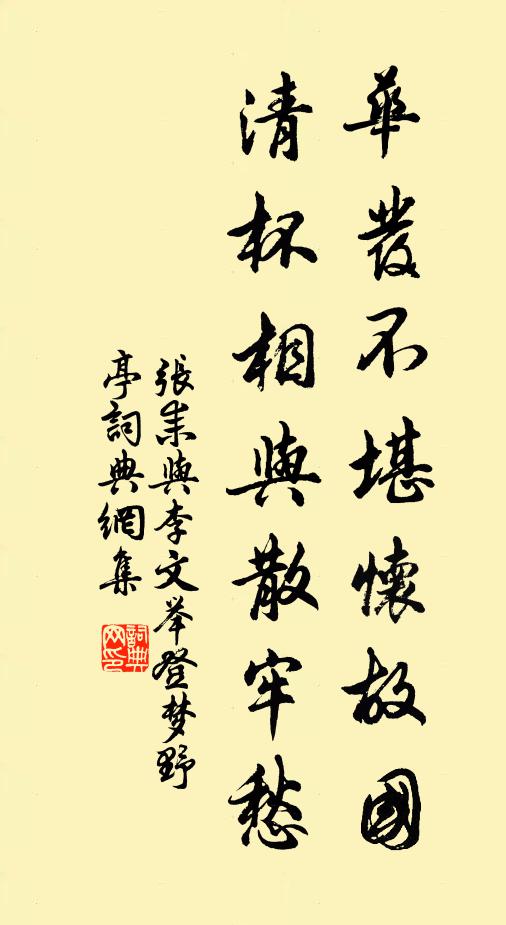 華發不堪懷故國
清杯相與散牢愁
張耒與李文举登梦野
亭詞典網集
詞典
网印